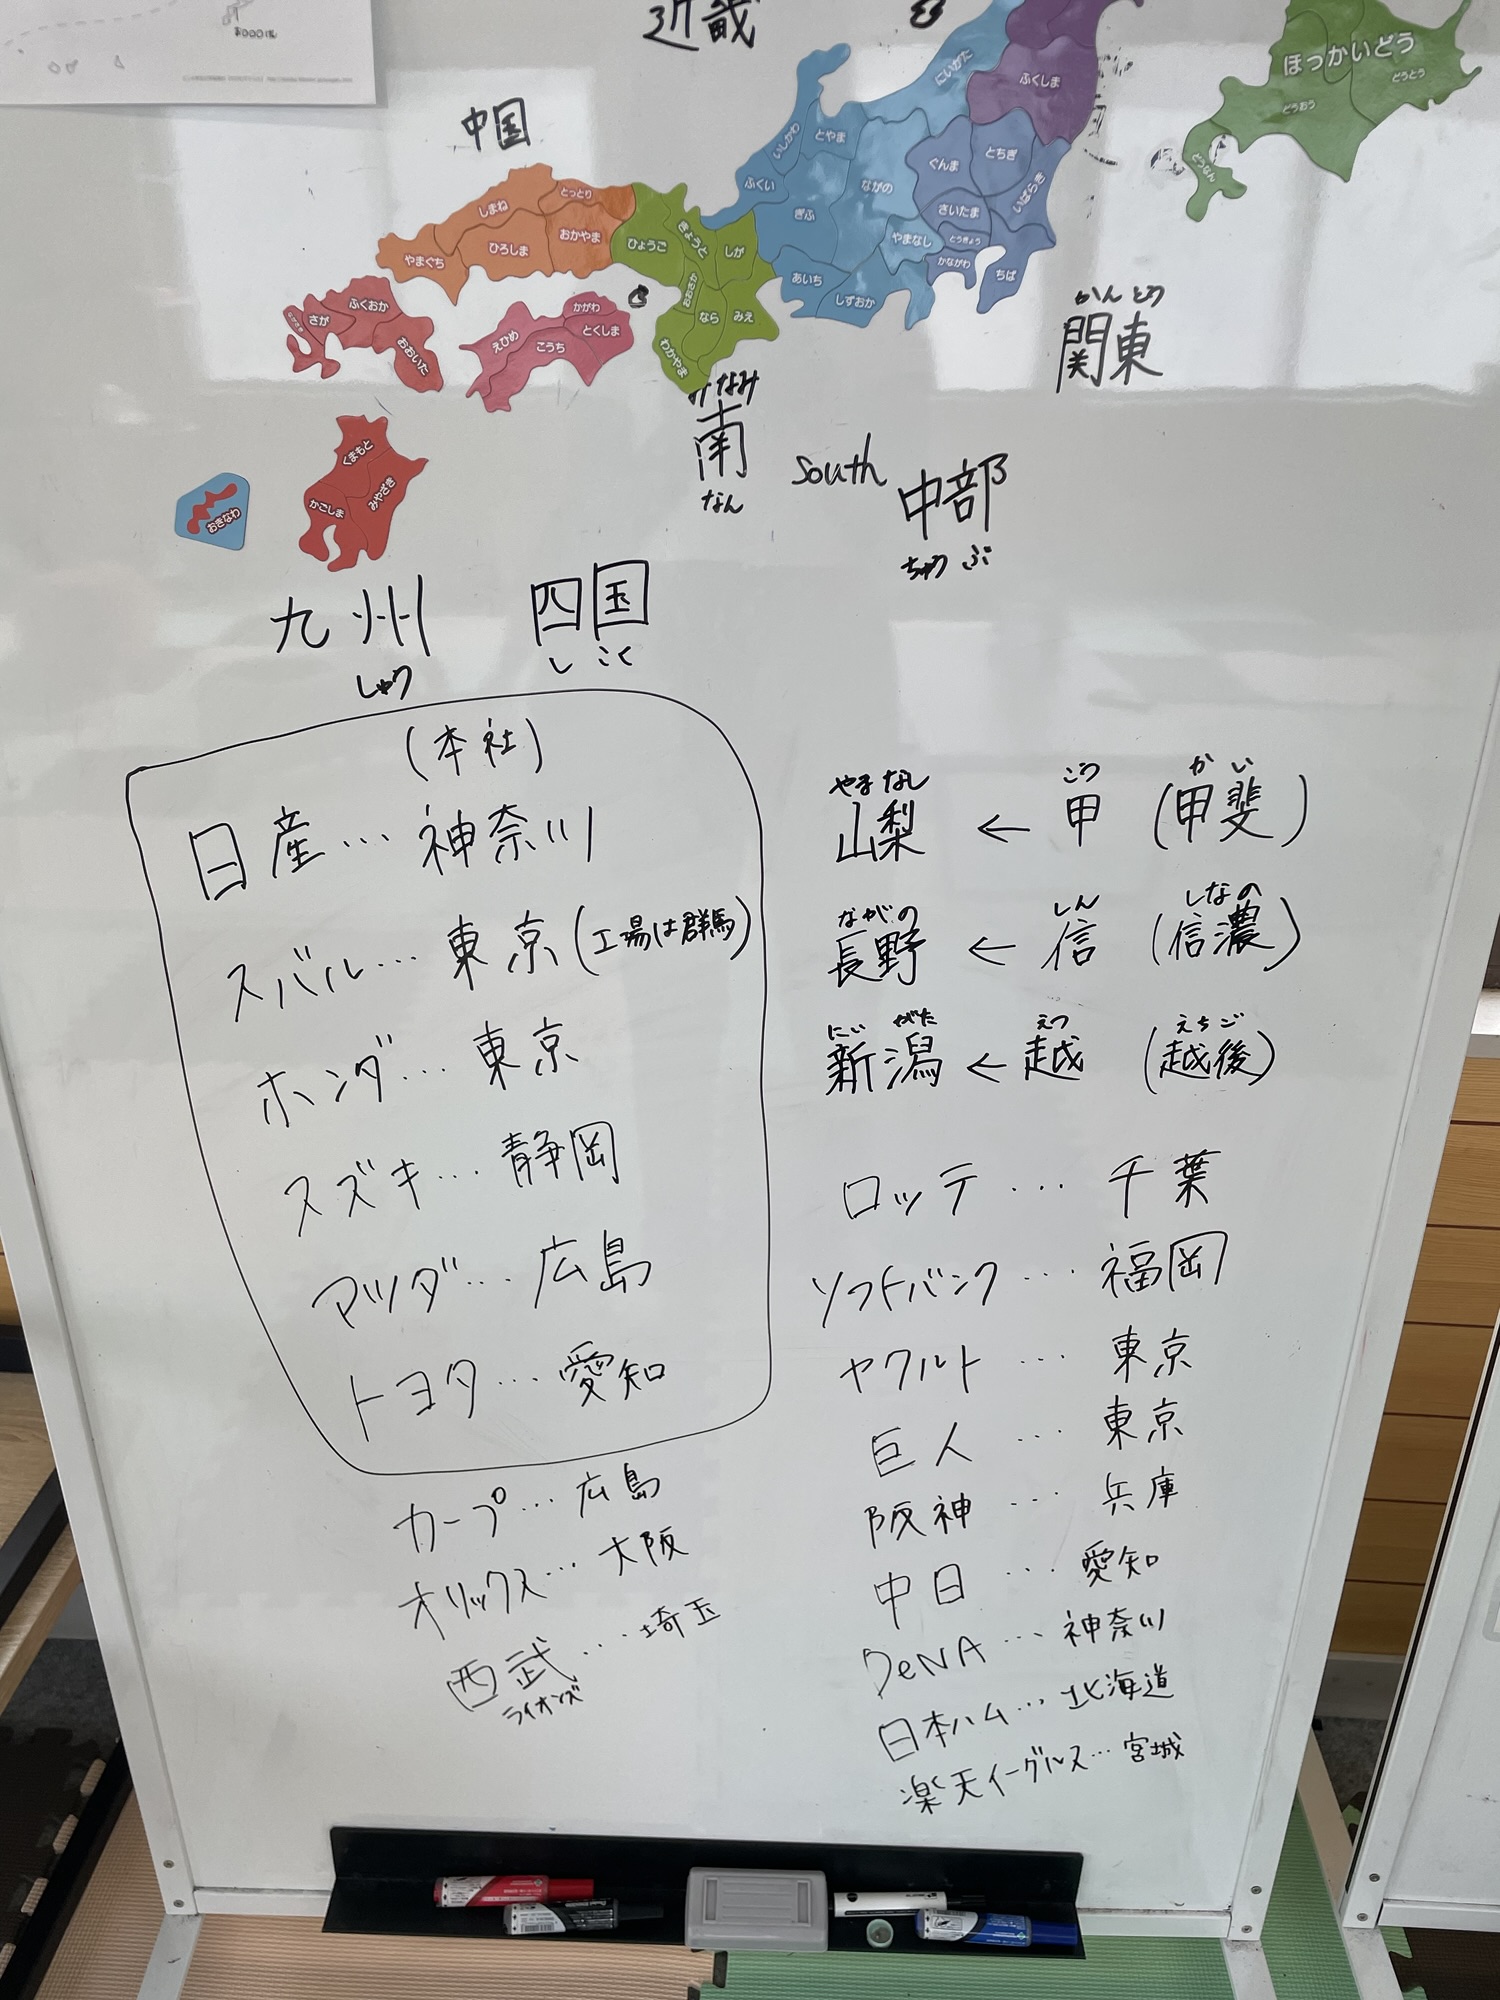 近畿
ほっかいどう
どうとう
どうおう
どうなん
にいがた
ふくしま
中国
いしかわ
とやま
ふくい
ながの
ぐんま
とちぎ
いばらき
さいたま
ぎふ
やまなし
とうきょう
かながわ
ちば
あいち
しずおか
とっとり
しまね
おかやま
ひろしま
やまぐち
ひょうご
きょうと
しが
おおさか
なら
みえ
わかやま
かがわ
とくしま
えひめ
こうち
ふくおか
さが
ながさき
おおいた
かんとう
関東
みなみ
南
なん
South
中部
ちゅうぶ
くまもと
みやざき
かごしま
おきなわ
九州
しゅう
四国
しこく
(本社)
日産…神奈川
スバル…東京(工場は群馬)
ホンダ…東京
スズキ…静岡
マツダ…広島
トヨタ…愛知
カープ…広島
オリックス…大阪
西武…埼玉
ライオンズ
やまなし こう かい
山梨 ← 甲 (甲斐)
ながの しん しなの
長野 ← 信 (信濃)
にいがた えつ えちご
新潟 ← 越 (越後)
ロッテ…千葉
ソフトバンク…福岡
ヤクルト…東京
巨人…東京
阪神…兵庫
中日…愛知
DeNA…神奈川
日本ハム…北海道
楽天イーグルス…宮城